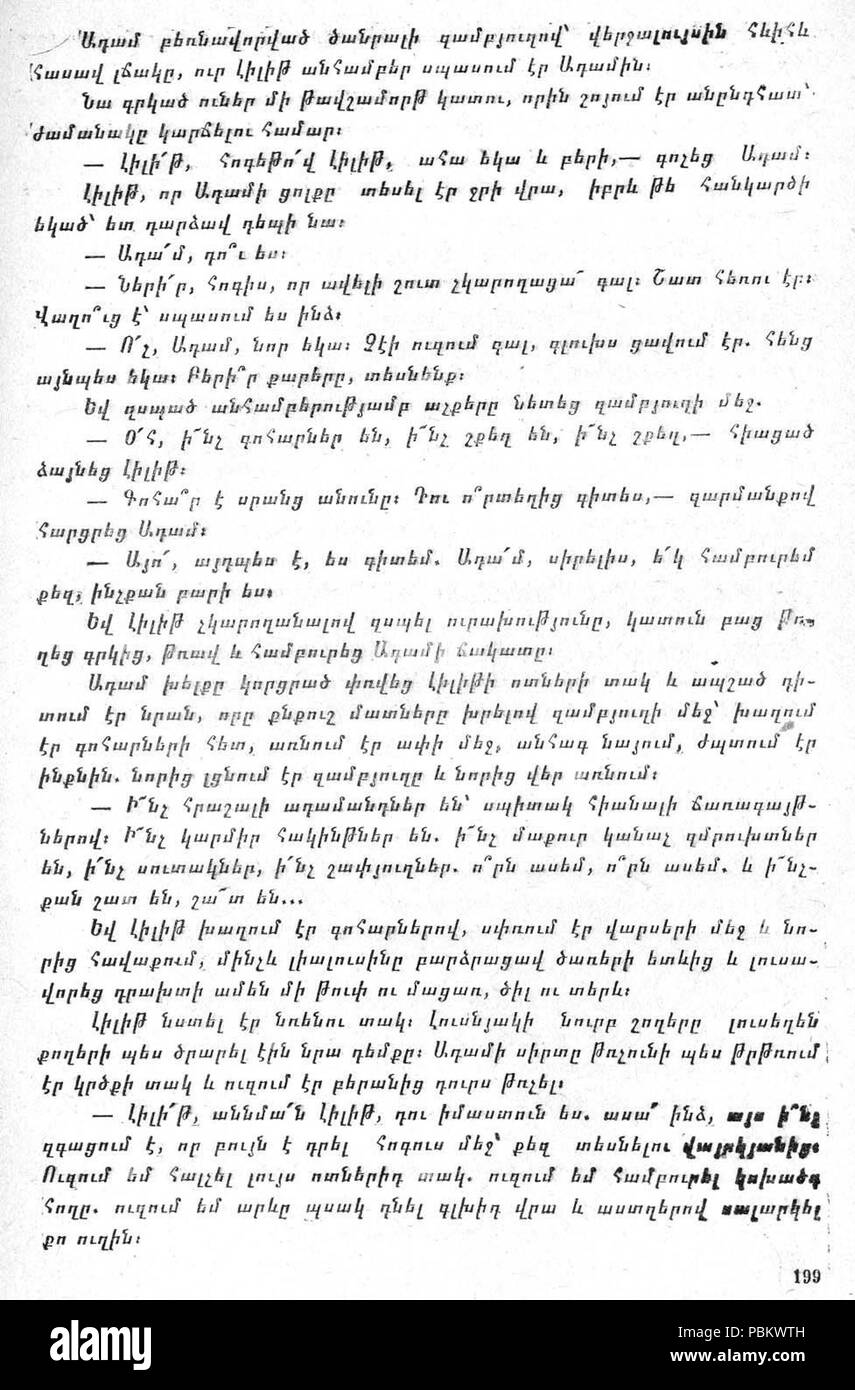 Ադամ բեռնավորված ծանրալի զամբյուղով՝ վերջալույսին հևիհև
հասավ լճակը, ուր Լիլիթ անհամբեր սպասում էր Ադամին։
Նա գրկած ուներ մի թավշամորթ կատու, որին շոյում էր անընդհատ՝
ժամանակը կարճելու համար։
— Լիլի՛թ, հոգեթո՛վ Լիլիթ, ահա եկա և բերի,— գոչեց Ադամ։
Լիլիթ, որ Ադամի ցոլքը տեսել էր ջրի վրա, իբրև թե հանկարծի
եկած՝ ետ դարձավ դեպի նա։
— Ադա՛մ, դո՞ւ ես։
— Ների՛ր, հոգիս, որ ավելի շուտ չկարողացա գալ։ Շատ հեռու էր։
Վաղո՞ւց է՝ սպասում ես ինձ։
— Ո՛չ, Ադամ, նոր եկա։ Չէի ուզում գալ, գլուխս ցավում էր. հենց
այնպես եկա։ Բերի՞ր քարերը, տեսնենք։
Եվ զսպած անհամբերությամբ աչքերը նետեց զամբյուղի մեջ.
— Օ՜հ, ի՜նչ գոհարներ են, ի՜նչ շքեղ են, ի՜նչ շքեղ,— հիացած
ձայնեց Լիլիթ։
— Գոհա՞ր է սրանց անունը։ Դու ո՞րտեղից գիտես,— զարմանքով
հարցրեց Ադամ։
— Այո՛, այդպես է, ես գիտեմ. Ադա՛մ, սիրելիս, ե՛կ համբուրեմ
քեզ, ինչքան բարի ես։
Եվ Լիլիթ չկարողանալով զսպել ուրախությունը, կատուն բաց թո-
ղեց գրկից, թռավ և համբուրեց Ադամի ճակատը։
Ադամ խելքը կորցրած փռվեց Լիլիթի ոտների տակ և ապշած դի-
տում էր նրան, որը քնքուշ մատները խրելով զամբյուղի մեջ՝ խաղում
էր գոհարների հետ, առնում էր ափի մեջ, անհագ նայում, ժպտում էր
ինքնին. նորից լցնում էր զամբյուղը և նորից վեր առնում։
— Ի՜նչ հրաշալի ադամանդներ են՝ սպիտակ հիանալի ճառագայթ-
ներով։ Ի՜նչ կարմիր հակինթներ են. ի՜նչ մաքուր կանաչ զմրուխտներ
են, ի՜նչ սուտակներ, ի՜նչ շափյուղներ. ո՞րն ասեմ, ո՞րն ասեմ. և ի՜նչ-
քան շատ են, շա՜տ են...
Եվ Լիլիթ խաղում էր գոհարներով, սփռում էր վարսերի մեջ և նո-
րից հավաքում, մինչև լիալուսինը բարձրացավ ծառերի ետևից և լուսա-
վորեց դրախտի ամեն մի թուփ ու մացառ, ծիլ ու տերև։
Լիլիթ նստել էր նռենու տակ։ Լուսնյակի նուրբ շողերը լուսեղեն
քողերի պես ծրարել էին նրա դեմքը։ Ադամի սիրտը թռչունի պես թրթռում
էր կրծքի տակ և ուզում էր բերանից դուրս թռչել։
— Լիլի՛թ, աննմա՛ն Լիլիթ, դու իմաստուն ես. ասա՛ ինձ, այս ի՞նչ
զգացում է, որ բույն է դրել հոգուս մեջ՝ քեզ տեսնելու վայրկյանից։
Ուզում եմ հալչել լույս ոտներիդ տակ. ուզում եմ համբուրել կոխածդ
հողը. ուզում եմ արևը պսակ դնել գլխիդ վրա և աստղերով սալարկել
քո ուղին։
199
alamy
Image ID: PBKWTH
www.alamy.com